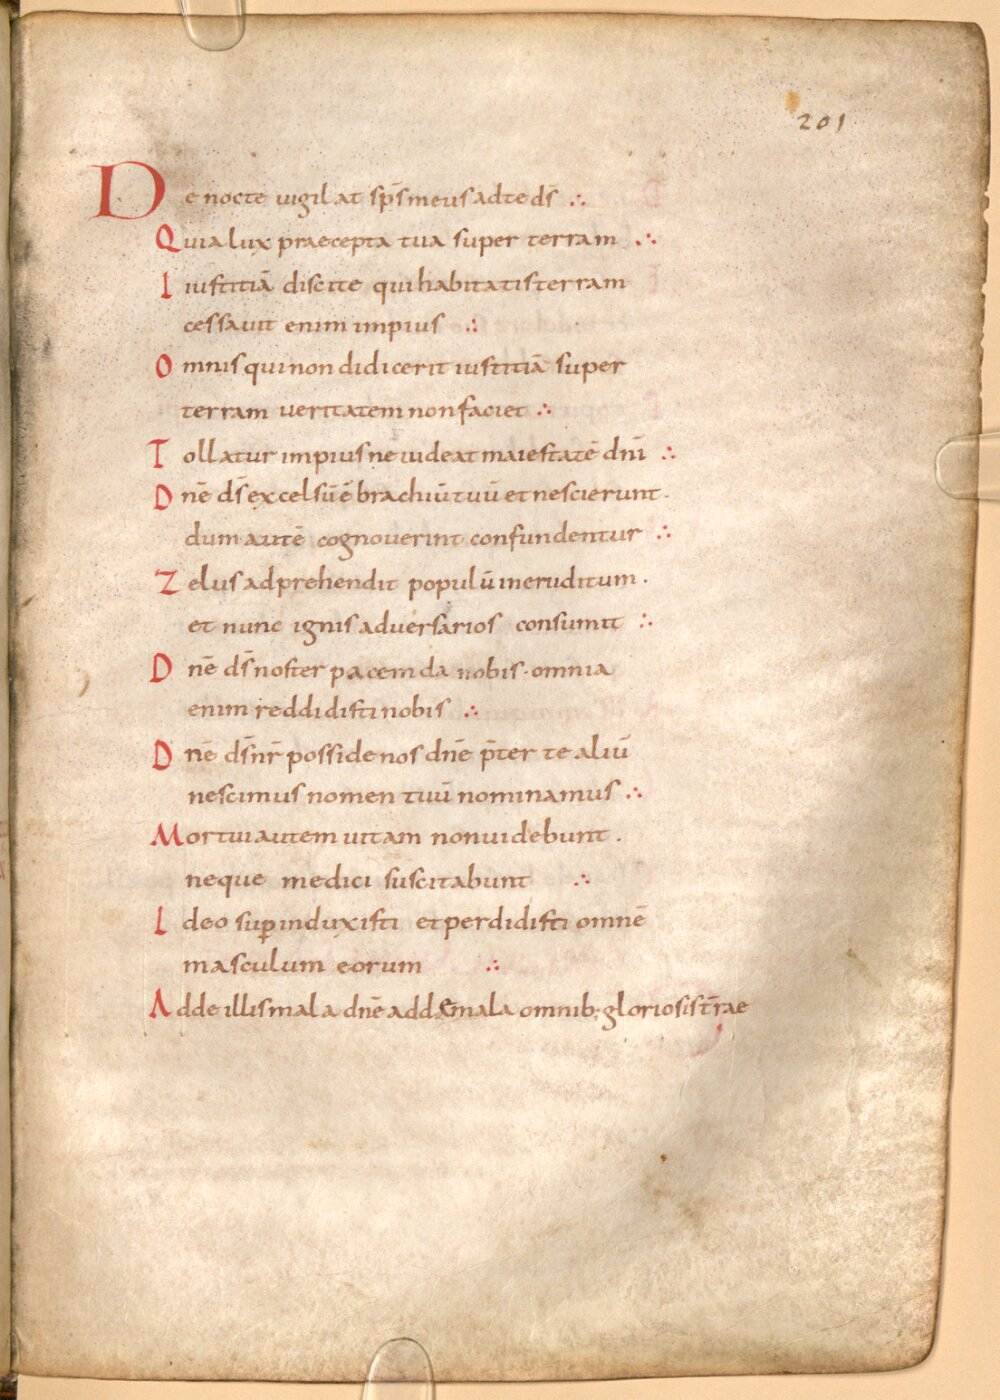 201
De nocte uigilat sp̄s meus ad te d̄s ∴
Quia lux praecepta tua super terram ∴
I iustitiā discite qui habitatis terram
cessauit enim impius ∴
Omnis qui non didicerit iustitiā super
terram ueritatem non faciet ∴
Tollatur impius ne uideat maiestatē dn̄i ∴
Dn̄e d̄s excelsū ē brachiū tuū et nescierunt.
dum autē cognouerint confundentur ∴
Zelus adprehendit populū ineruditum.
et nunc ignis aduersarios consumit ∴
Dn̄e d̄s noster pacem da nobis· omnia
enim reddidisti nobis ∴
Dn̄e d̄s nr̄ posside nos dn̄e p̄ter te aliū
nescimus nomen tuū nominamus ∴
Mortui autem uitam non uidebunt.
neque medici suscitabunt ∴
Ideo suꝑinduxisti et perdidisti omnē
masculum eorum ∴
Adde illis mala dn̄e adde mala omnib; gloriosis t̄rrae